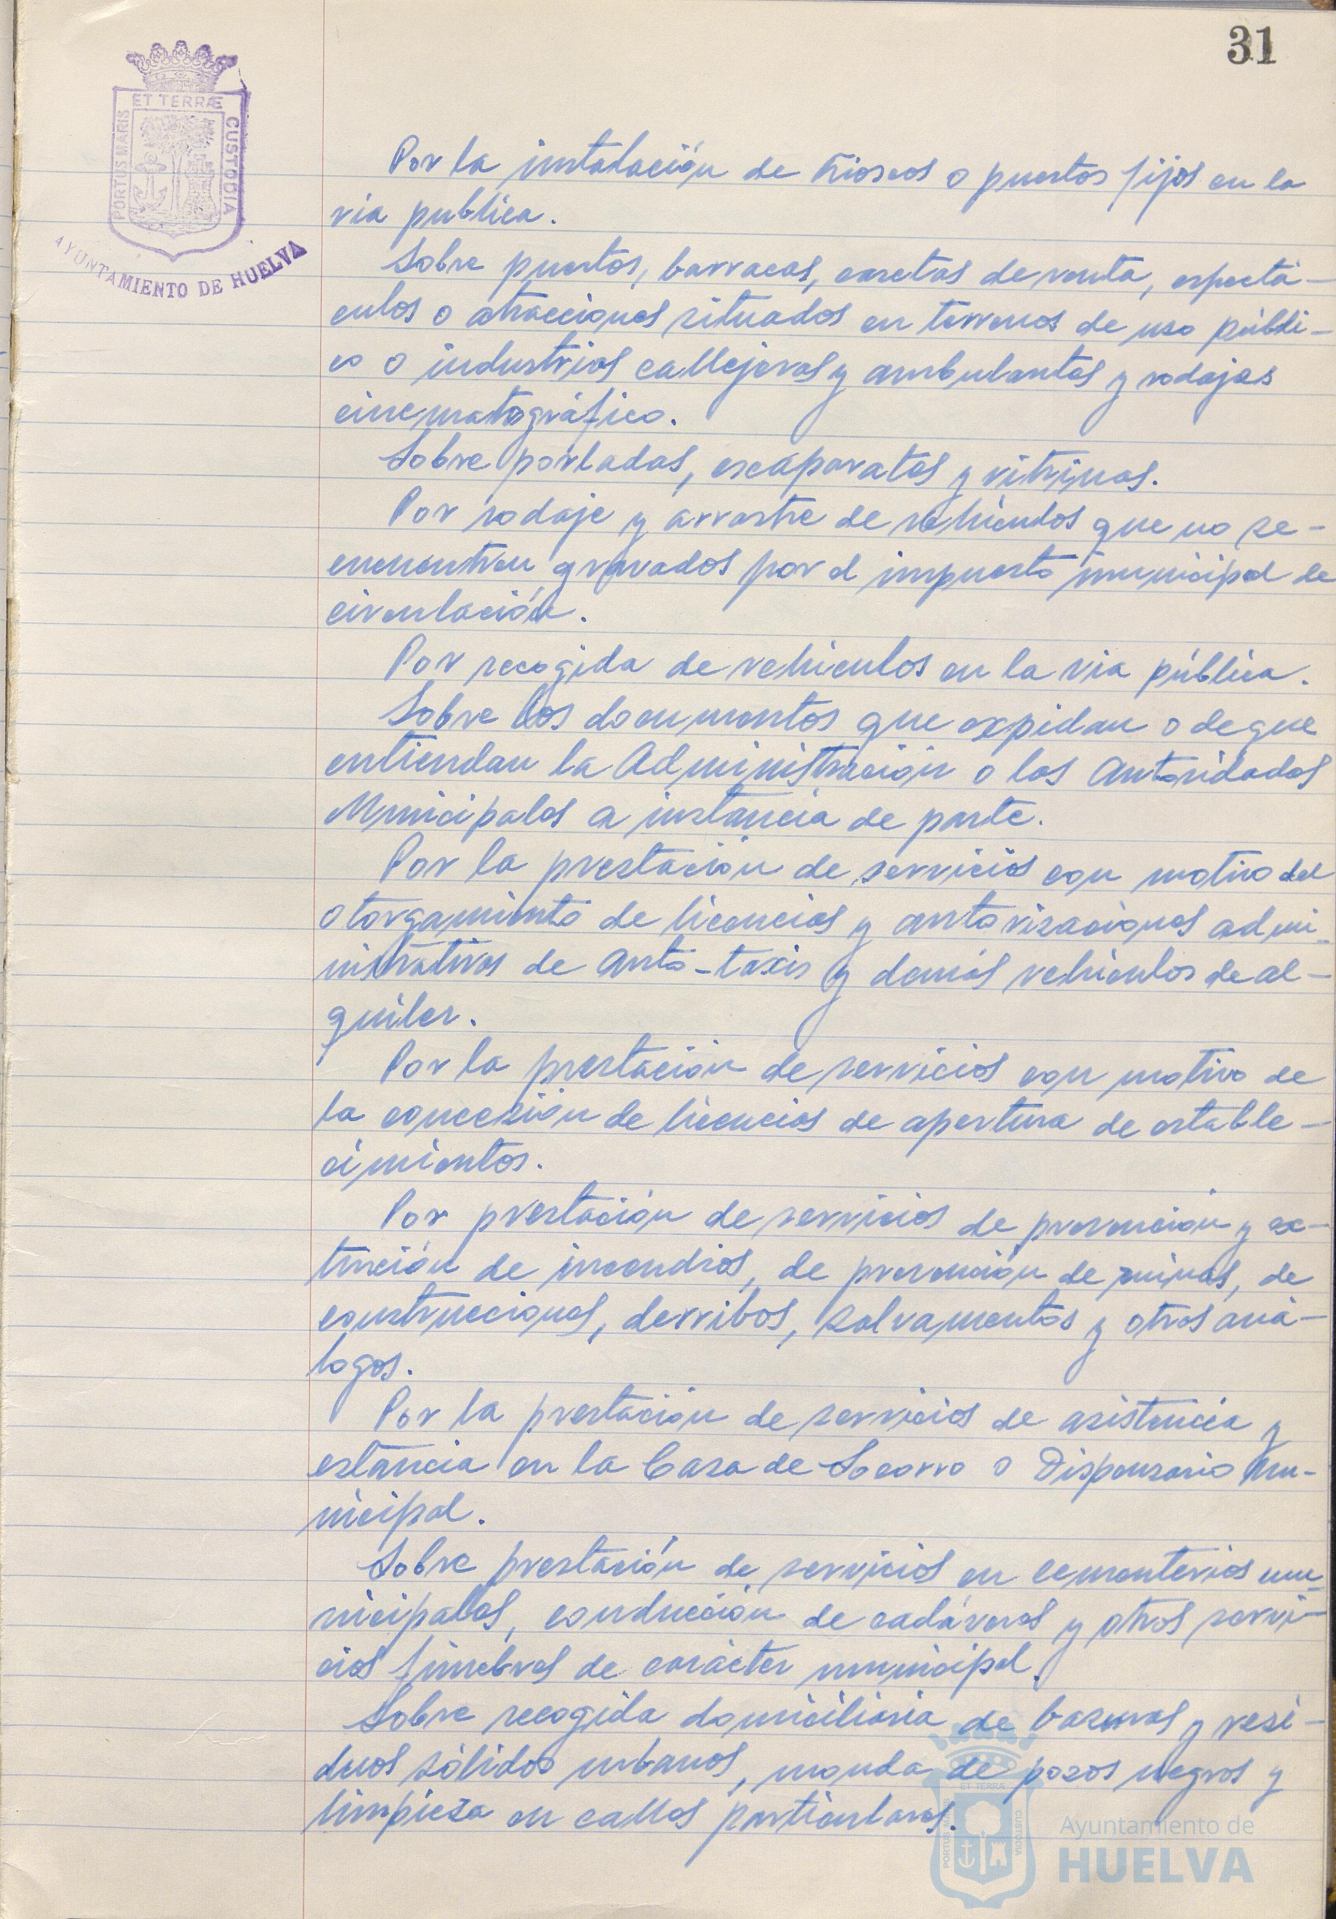 31
ET TERRÆ
PORTUS MARIS
CUSTODIA
AYUNTAMIENTO DE HUELVA
Por la instalación de Kioscos o puestos fijos en la
via publica.
Sobre puestos, barracas, casetas de venta, espectá-
culos o atracciones situados en terrenos de uso públi-
co o industrias callejeras y ambulantes y rodajes
cinematográfico.
Sobre portadas, escaparates y vitrinas.
Por rodaje y arrastre de vehículos que no se-
encuentren gravados por el impuesto municipal de
circulación.
Por recogida de vehiculos en la via pública.
Sobre los documentos que expidan o de que
entiendan la Administración o las Autoridades
Municipales a instancia de parte.
Por la prestación de servicios con motivo del
otorgamiento de licencias y autorizaciones admi-
nistrativas de auto-taxis y demás vehículos de al-
quiler.
Por la prestación de servicios con motivo de
la concesión de licencias de apertura de estable-
cimientos.
Por prestación de servicios de prevención y ex-
tinción de incendios, de prevención de ruinas, de
construcciones, derribos, salvamentos y otros aná-
logos.
Por la prestación de servicios de asistencia y
estancia en la Casa de Socorro o Dispensario Mu-
nicipal.
Sobre prestación de servicios en cementerios mu-
nicipales, conducción de cadáveres y otros servi-
cios fúnebres de carácter municipal.
Sobre recogida domiciliaria de basuras y resi-
duos sólidos urbanos, monda de pozos negros y
limpieza en calles particulares.
ET TERRA
PORTUS MARIS
CUSTODIA
Ayuntamiento de
HUELVA